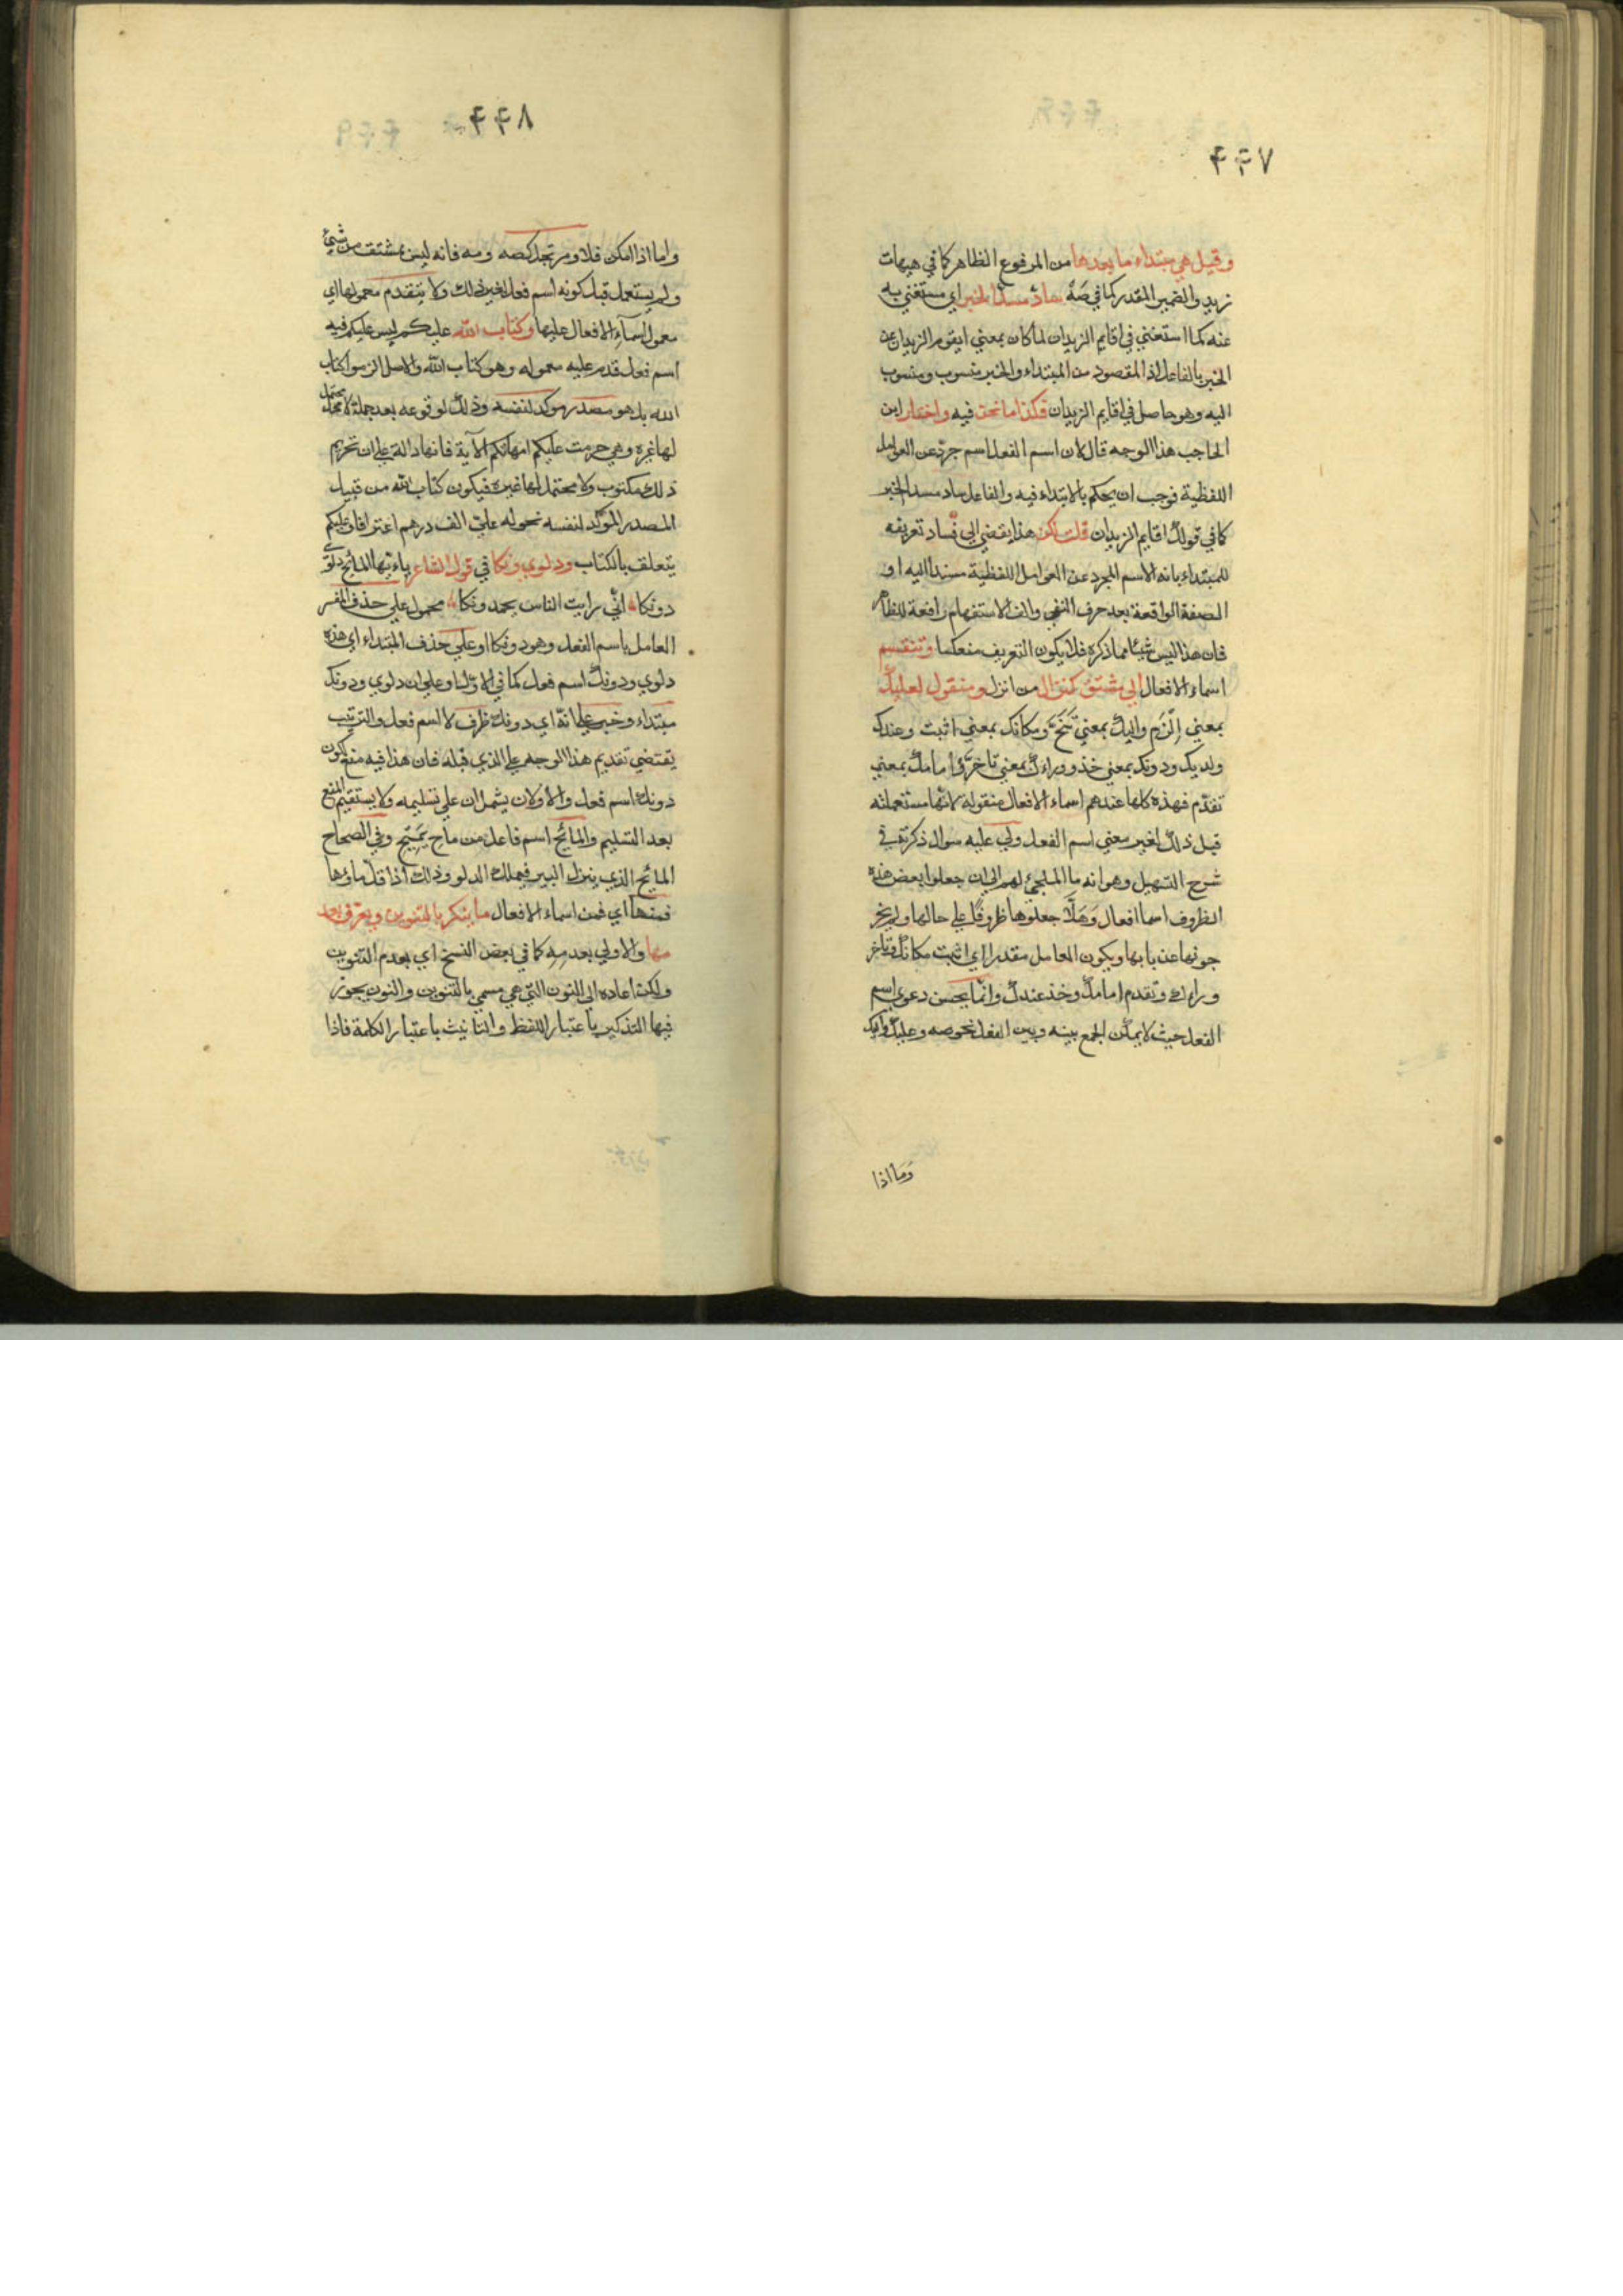 ۴۴۷
وقيل هي مبتداء ما بعدها من المرفوع الظاهر كما في هيهات
زيد والضمير المقدر كما في صَهْ ساد مسد الخبر اي مستغني به
عنه كما استغني في اقايم الزيدان لما كان بمعني ايقوم الزيدان عن
الخبر بالفاعل اذ المقصود من المبتداء والخبر منسوب ومنسوب
اليه وهو حاصل في اقايم الزيدان فكذا ما نحن فيه واختار ابن
الحاجب هذا الوجه قال لان اسم الفعل اسم جرد عن العوامل
اللفظية فوجب ان يحكم بالابتداء فيه والفاعل ساد مسد الخبر
كما في قولك اقايم الزيدان قلت لكن هذا يفضي الي فساد تعريفه
للمبتداء بانه الاسم المجرد عن العوامل اللفظية مسندا اليه او
الصفة الواقعة بعد حرف النفي والف الاستفهام رافعة للظاهر
فان هذا ليس شيئا مما ذكره فلا يكون التعريف منعكسا وتنقسم
اسماء الافعال الي مشتق كنزال من انزل ومنقول لعليك
بمعني اِلْزَم واليك بمعني تَنَحَّ ومكانك بمعني اثبت وعندك
ولديك ودونك بمعني خذ ووراءك بمعني تاخرّ وامامك بمعني
تقدّم فهذه كلها عندهم اسماء الافعال منقولة لانها مستعملة
قبل ذلك لغير معني اسم الفعل ولي عليه سوال ذكرته في
شرح التسهيل وهو انه ما الملجئ لهم الي ان جعلوا بعض هذه
الظروف اسما افعال وَهَلَّا جعلوها ظروفًا علي حالها ولم يخر
جونها عن بابها ويكون العامل مقدرا اي اثبت مكانك وتاخر
وراءك وتقدم امامك وخذ عندك وانما يحسن دعوي اسم
الفعل حيث لا يمكن الجمع بينه وبين الفعل نحو صه وعليك واليك
وَمَا اذا
۴۴۸
واما اذا امكن فلا ومرتجل كصه ومه فانه ليس بمشتق من شيئ
ولم يستعمل قبل كونه اسم فعل لغير ذلك ولا يتقدم معمولها اي
معمول اسماء الافعال عليها وكتاب الله عليكم ليس عليكم فيه
اسم فعل قدم عليه معموله وهو كتاب الله والاصل الزموا كتاب
الله بل هو مصدر موكد لنفسه وذلك لوقوعه بعد جملة لا محتمل
لها غيره وهي حرمت عليكم امهاتكم الآية فانها دالة علي ان تحريم
ذلك مكتوب ولا محتمل لها غيره فيكون كتاب الله من قبيل
المصدر المؤكد لنفسه نحو له عليّ الف درهم اعترافا وعليكم
يتعلق بالكتاب ودلوي دونكا في قول الشاعر ياءيّها المائح دلوي
دونكا اني رايت الناس يحمدونكا محمول علي حذف المفسر
العامل باسم الفعل وهو دونكا او علي حذف المبتداء اي هذه
دلوي ودونك اسم فعل كما في الاول او علي ان دلوي ودونك
مبتداء وخبر علي انه اي دونك ظرف لا اسم فعل والترتيب
يقتضي تقديم هذا الوجه علي الذي قبله فان هذا فيه منع كون
دونك اسم فعل والاولان يشملان علي تسليمه ولا يستقيم المنع
بعد التسليم والمائح اسم فاعل من ماح يَمِيح وفي الصحاح
المائح الذي ينزل البير فيملك الدلو وذلك اذا قلّ ماؤها
فمنها اي فمن اسماء الافعال ما ينكر بالتنوين ويعرّف بعد
مها والاولي بعدمه كما في بعض النسخ اي بعدم التنوين
ولكن اعاده الي النون التي هي مسمي بالتنوين والنون يجوز
فيها التذكير باعتبار اللفظ والتانيث باعتبار الكلمة فاذا